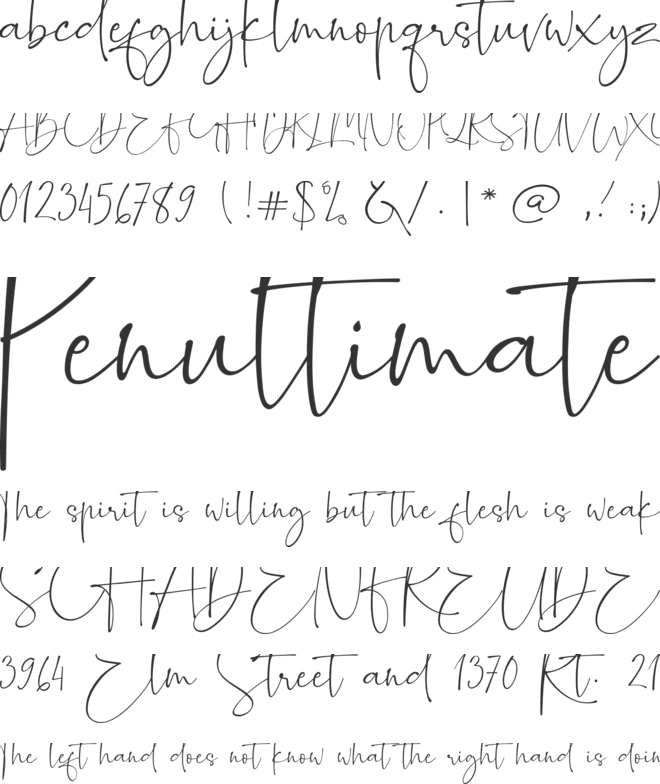 abcdefghijklmnopqrstuvwxyz
ABCDEFGHIJKLMNOPQRSTUVWX
0123456789 (!#$%&/.|*@,!:;)
Penultimate
The spirit is willing but the flesh is weak
SCHADENFREUDE
3964 Elm Street and 1370 Rt. 21
The left hand does not know what the right hand is doin